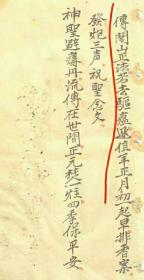 傳閭山正法芳去驅瘟逢值年正月初一起早排香案
發炮三声祝聖念文
神聖避瘟丹流傳在世間正元焚一炷四季保平安